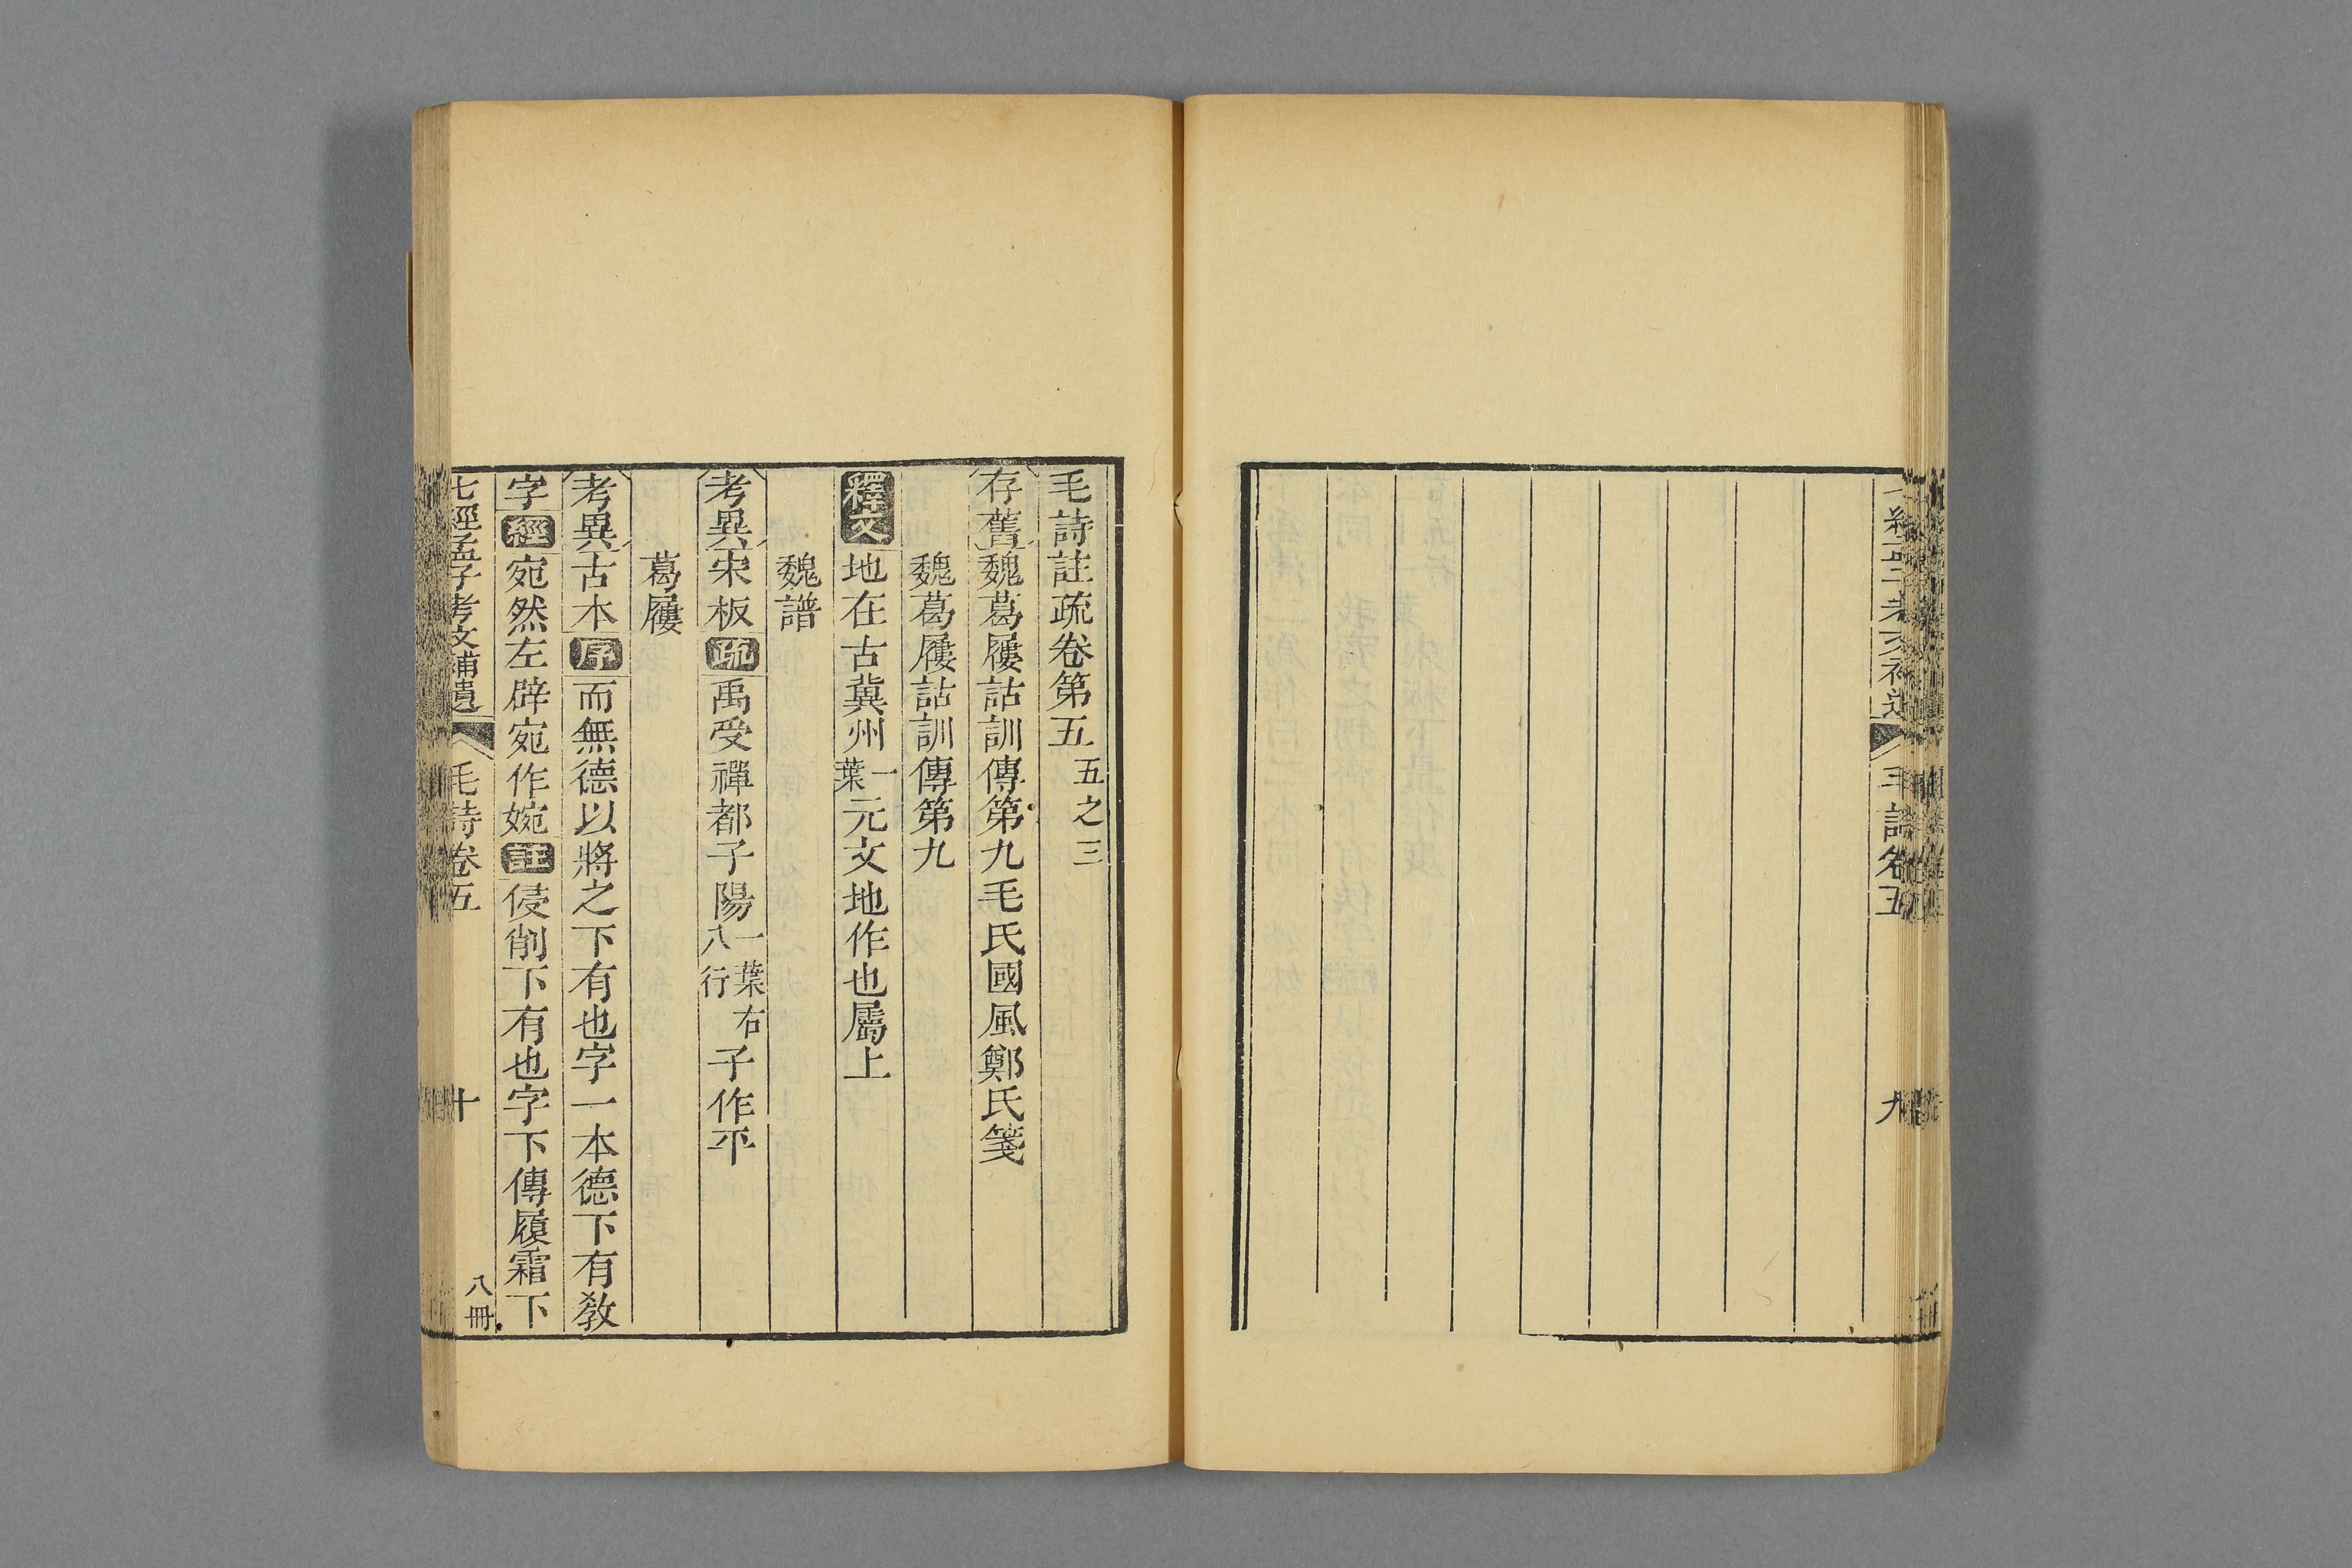 七經孟子考文補遺 毛詩卷五 九
毛詩註疏卷第五 五之三
存舊 魏葛屨詁訓傳第九毛氏國風鄭氏箋
魏葛屨詁訓傳第九
釋文 地在古冀州一葉元文地作也屬上
魏譜
考異 宋板 疏 禹受禪都子陽一葉右八行子作平
葛屨
考異 古本 序 而無德以將之下有也字一本德下有教
字 經 宛然左辟宛作婉 註 侵削下有也字下傳履霜下
七經孟子考文補遺 毛詩卷五 十 八冊